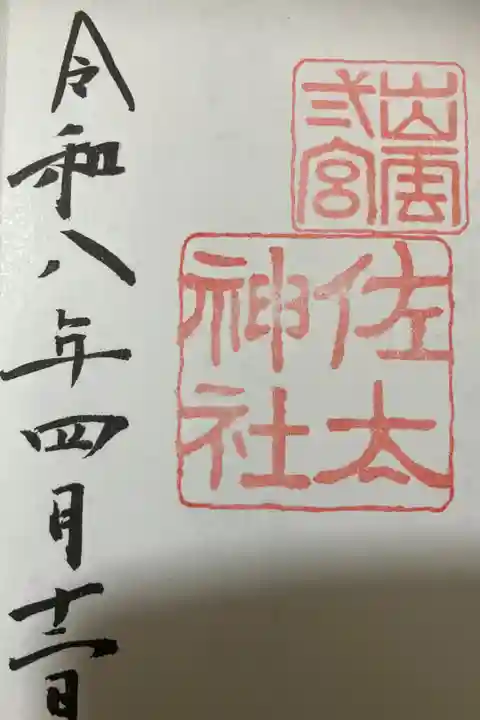 出雲
弐宮
佐太
神社
令和八年四月十二日